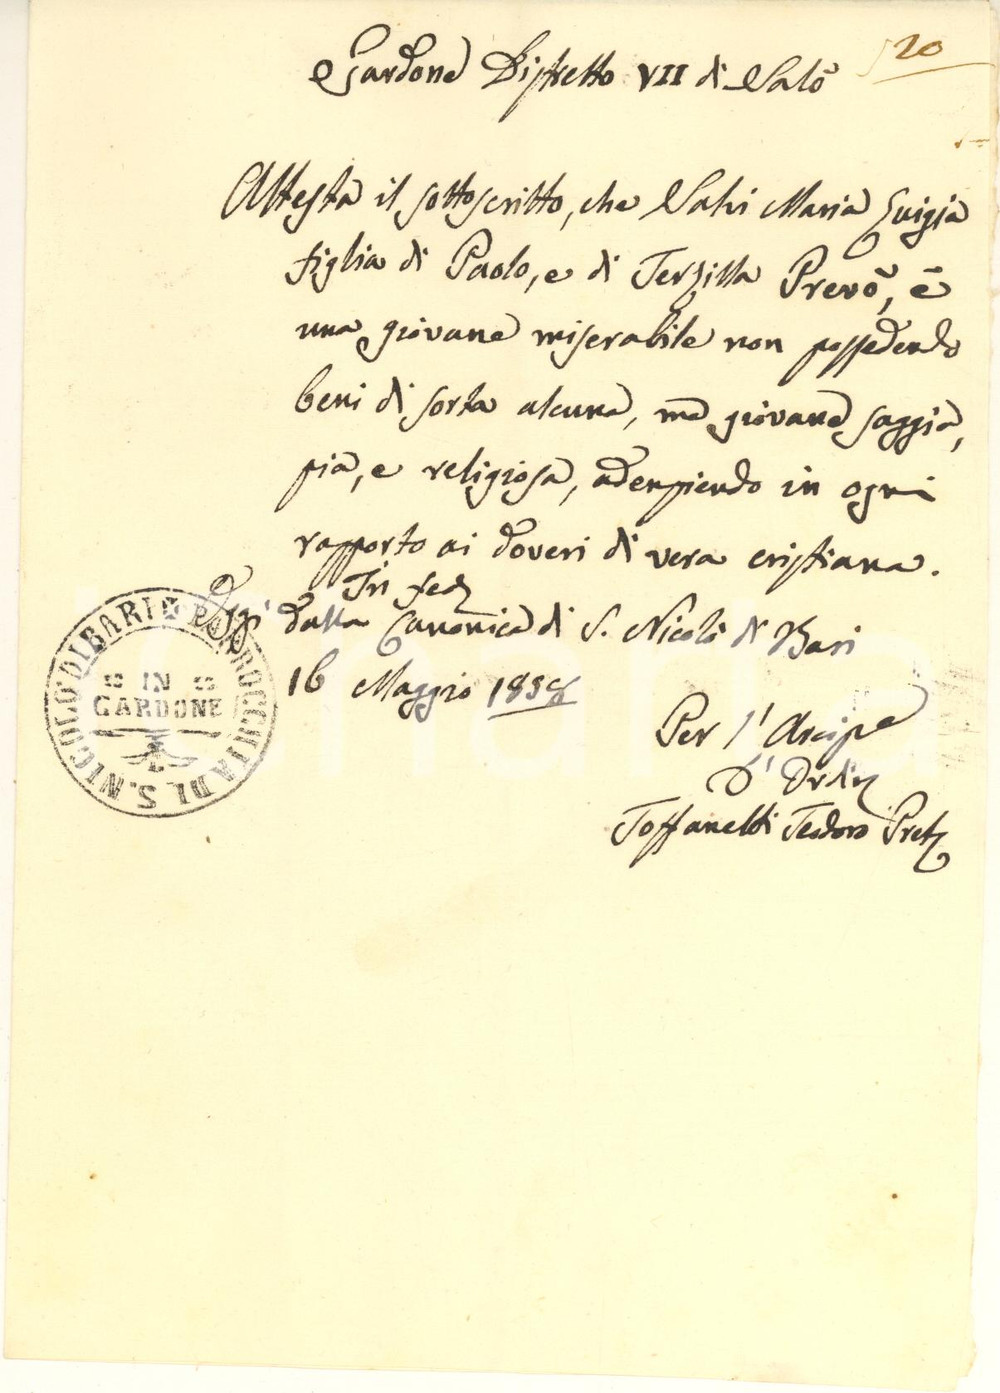 20
Gardone Distretto VII di Salò
Attesta il sottoscritto, che Salvi Maria Luigia
figlia di Paolo, e di Terzilla Prevò, è
una giovane miserabile non possedendo
beni di sorta alcuna, ma giovane saggia,
pia, e religiosa, adempiendo in ogni
rapporto ai doveri di vera cristiana.
In fede
Oggi dalla Canonica di S. Nicolò di Bari
16 Maggio 1838
Per l'Arcipe
D' Ordi
Toffanelli Teodoro Prete
PARROCCHIA DI S. NICOLO' DI BARI
IN
GARDONE